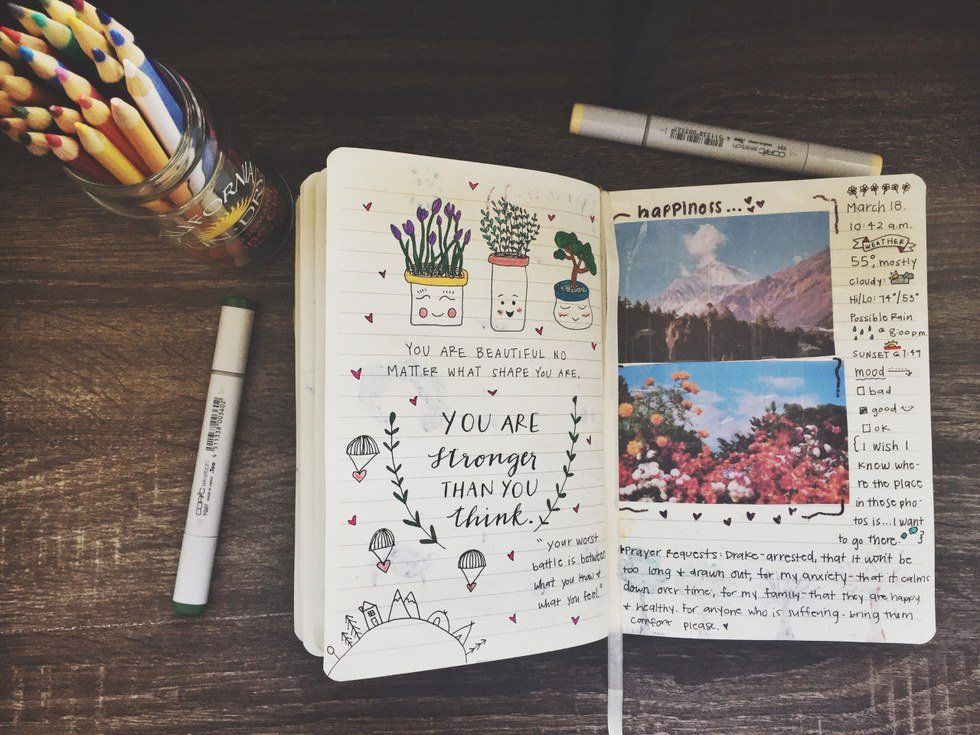 YOU ARE BEAUTIFUL NO
MATTER WHAT SHAPE YOU ARE.
YOU ARE
stronger
THAN YOU
think.
"your worst
battle is between
what you know &
what you feel."
happiness...
March 18.
10:42 a.m.
WEATHER
55°, mostly
cloudy.
Hi/Lo: 74°/55°
Possible Rain
@ 8:00p.m.
SUNSET @ 7:49
mood
bad
good
ok
{I wish I
knew whe-
re the place
in these pho-
tos is... I want
to go there. }
Prayer Requests: Drake-arrested, that it won't be
too long & drawn out, for my anxiety-that it calms
down over time, for my family-that they are happy
& healthy. for anyone who is suffering-bring them
comfort please.
COPIC sketch
COPIC sketch